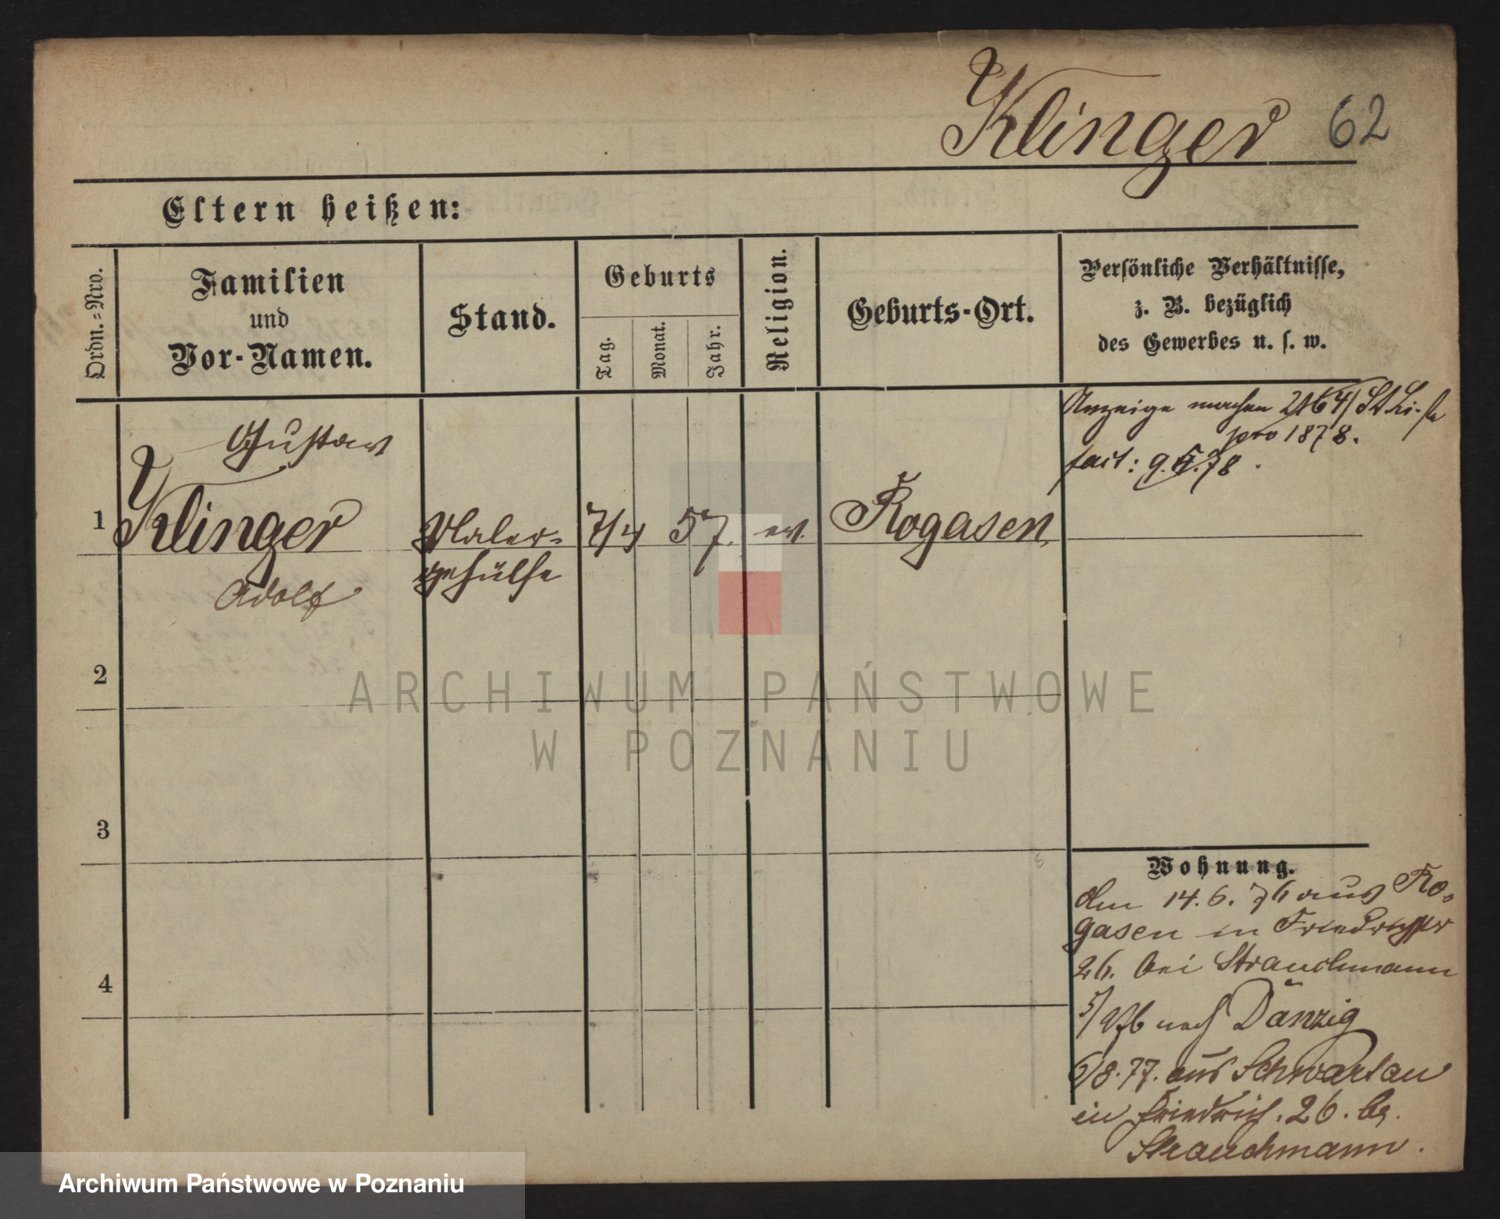 Klinger 62
Eltern heißen:
Ordn.-Nro.
Familien
und
Vor-Namen.
Stand.
Geburts
Tag.
Monat.
Jahr.
Religion.
Geburts-Ort.
Persönliche Verhältnisse,
z. B. bezüglich
des Gewerbes u. s. w.
Anzeige machen
pro 1878.
fact: 9.5.78.
Gustav
1 Klinger Maler- 7/4 57. ev. Rogasen
gehülfe
Adolf
2
3
4
Wohnung.
14.6.76 aus Ro-
gasen in Friedrichstr
26. bei Strauchmann
nach Danzig
6/8.77. aus Schwarsau
in Friedrich. 26. b.
Strauchmann.
ARCHIWUM PAŃSTWOWE
W POZNANIU
Archiwum Państwowe w Poznaniu